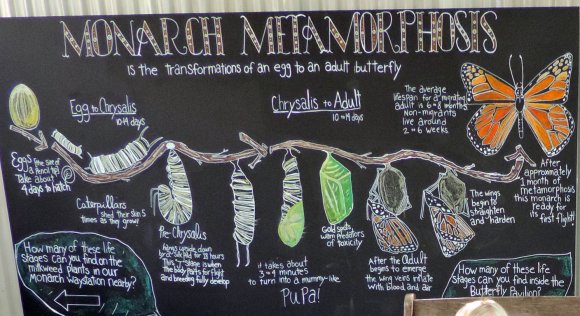 MONARCH METAMORPHOSIS
is the transformations of an egg to an adult butterfly
Egg to Chrysalis
10-14 days
Chrysalis to Adult
10-14 days
The average
lifespan for a migrating
adult is 6-8 months
Non-migrants
live around
2-6 weeks
Eggs the size of
a pencil tip
Take about
4 days to hatch
Caterpillars
shed their skin 5
times as they grow!
Pre-Chrysalis
Hangs upside down
by a silk pad for 18 hours
This stage is when
the body parts for flight
and breeding fully develop
it takes about
3-4 minutes
to turn into a mummy-like
Pupa!
Gold spots
warn predators
of toxicity
After the Adult
begins to emerge
the wing veins inflate
with blood and air
The wings
begin to
straighten
and harden
After
approximately
1 month of
metamorphosis
this monarch is
ready for
its first flight!
How many of these life
stages can you find on the
milkweed plants in our
Monarch Waystation nearby?
How many of these life
stages can you find inside the
Butterfly Pavilion?